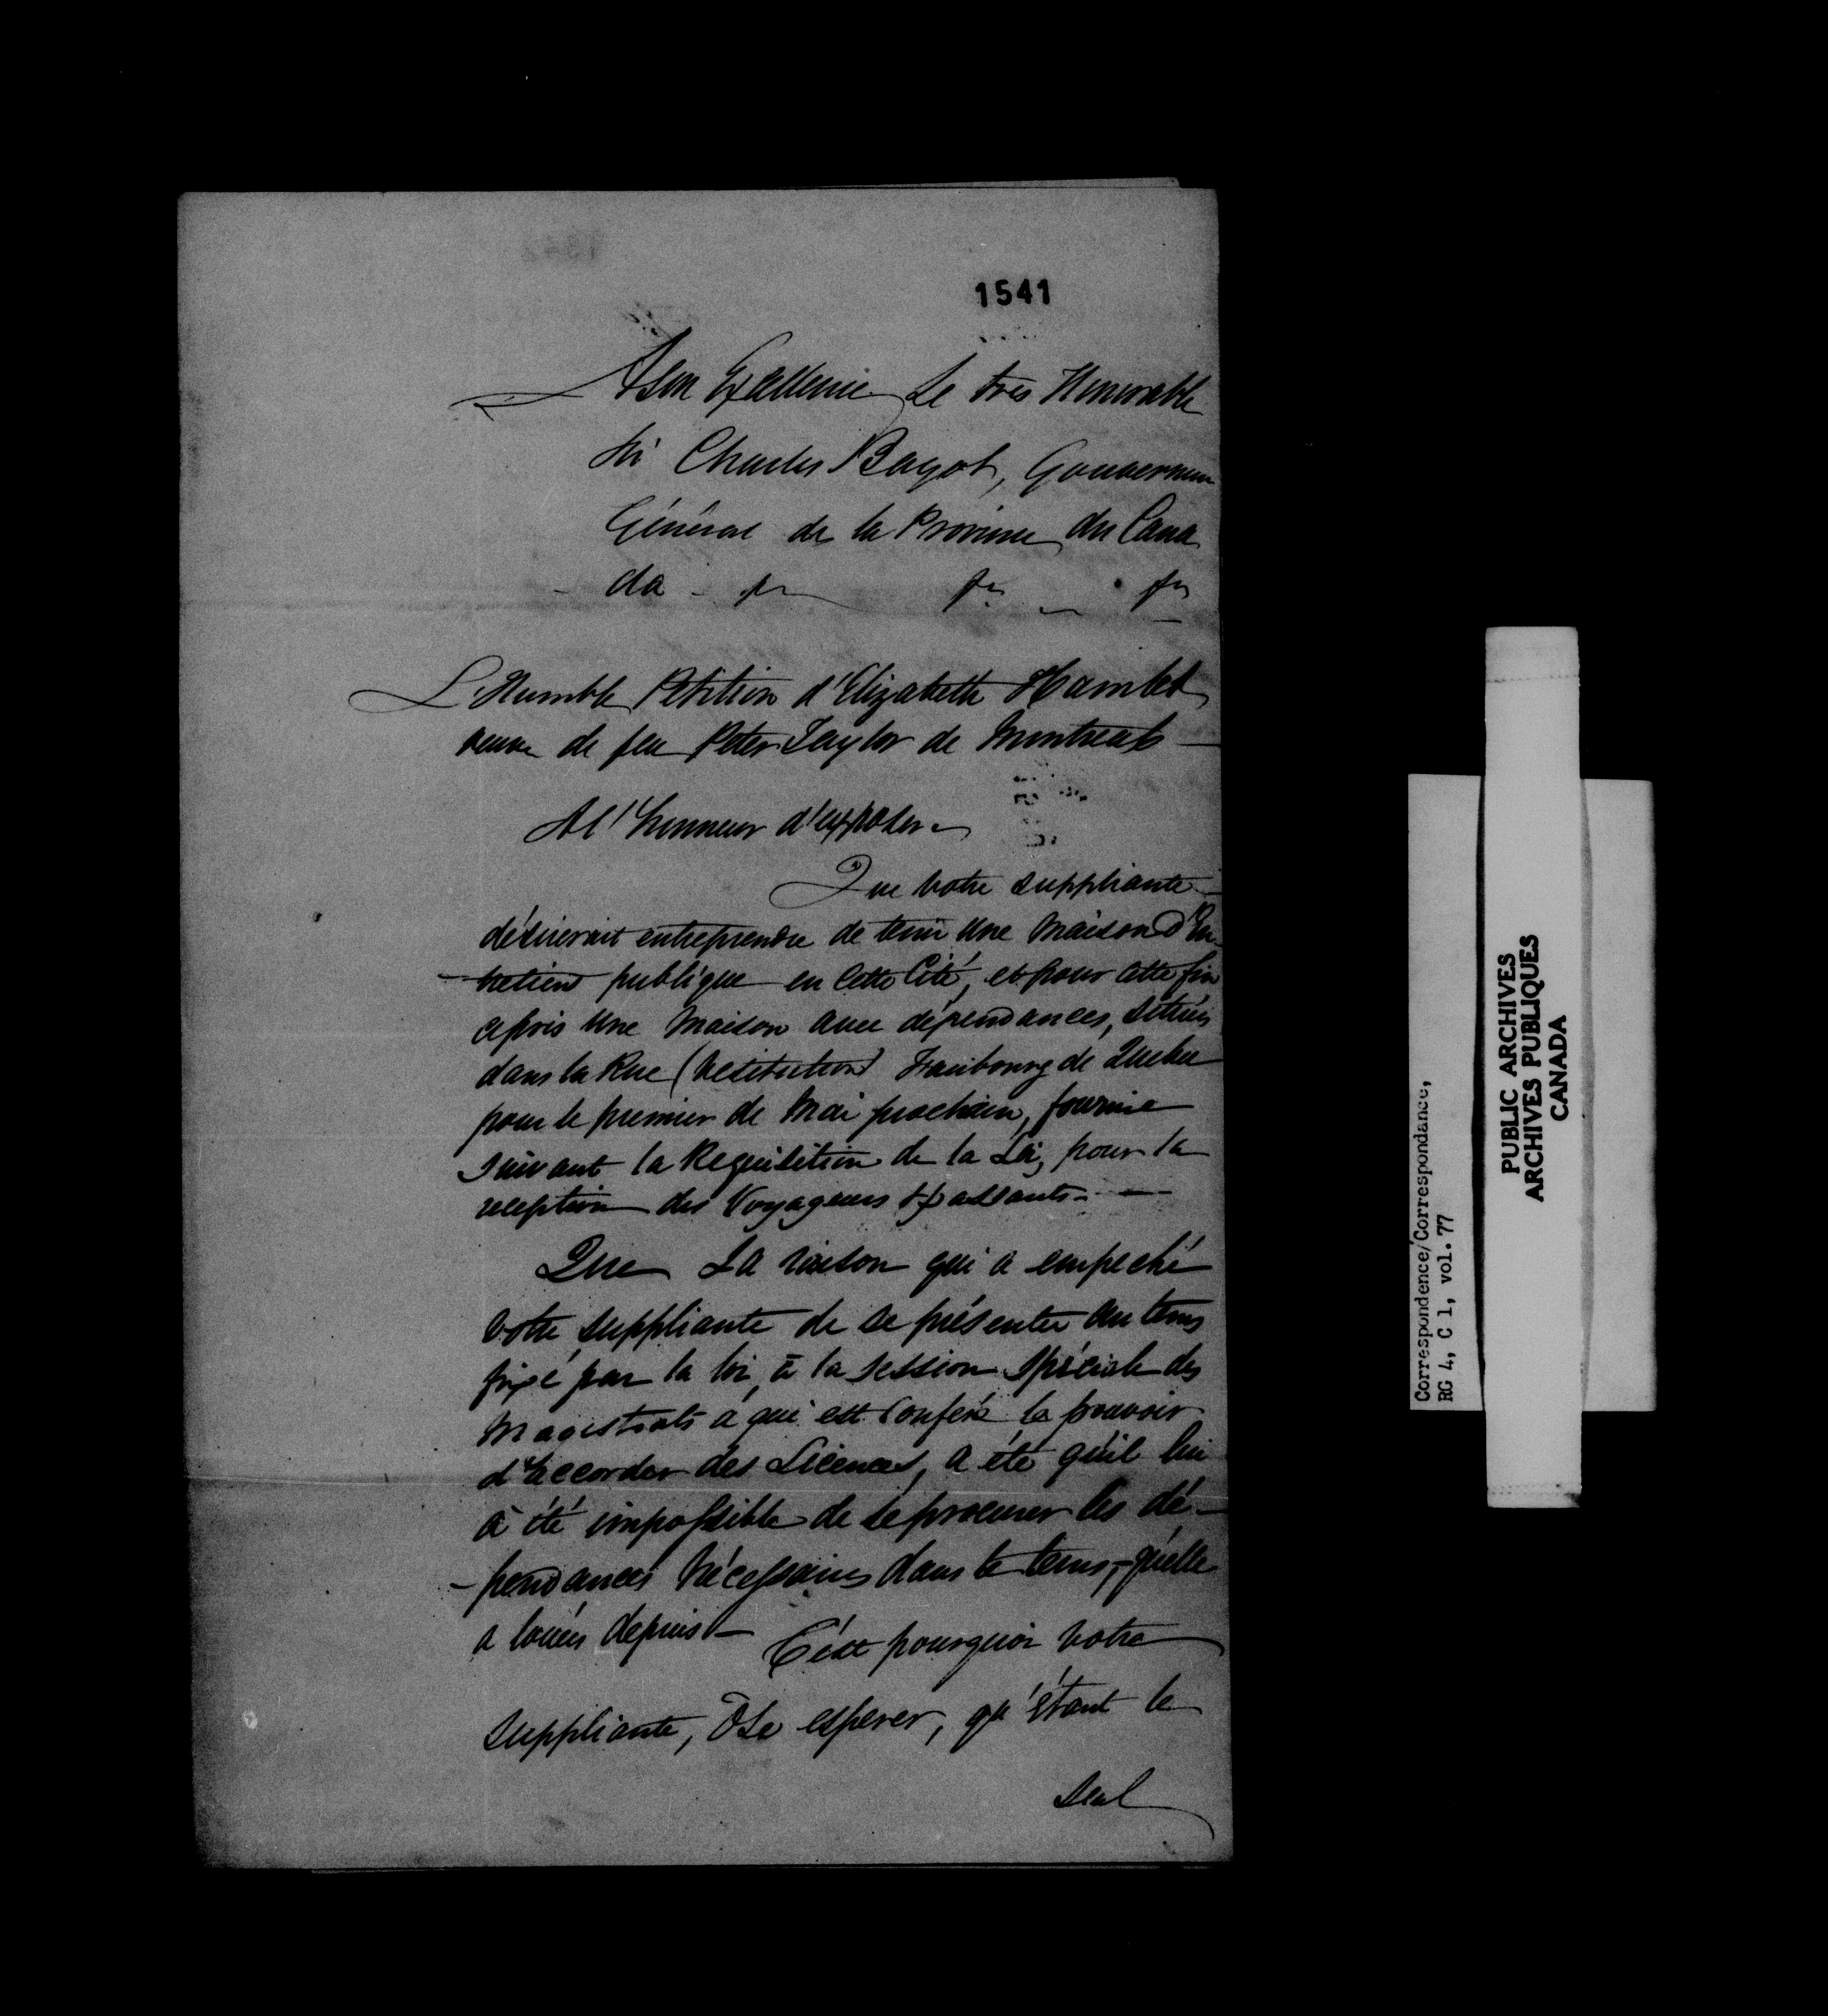 1541
A Son Excellence Le très Honorable
Sir Charles Bagot, Gouverneur
Général de la Province du Cana
da - &c &c &c
L'Humble Pétition d'Elizabeth Hamlet
veuve de feu Peter Taylor de Montreal
A l'honneur d'exposer
Que votre suppliante
désirerait entreprendre de tenir une Maison d'En-
-tretien publique en cette Cité, et pour cette fin
a pris une maison avec dépendances, situées
dans la Rue (Visitation) Faubourg de Quebec
pour le premier de Mai prochain, fournie
suivant la Requisition de la Loi, pour la
reception des Voyageurs & passants.
Que La raison qui a empeché
votre suppliante de se présenter au tems
fixé par la loi, à la session spéciale des
Magistrats à qui est conféré le pouvoir
d'accorder des Licences, a été qu'il lui
a été impossible de se procurer les dé-
-pendances nécessaires dans le tems, qu'elle
a louées depuis - C'est pourquoi votre
suppliante, Ose esperer, qu'étant le
seul
Correspondence/Correspondance,
RG 4, C 1, vol. 77
PUBLIC ARCHIVES
ARCHIVES PUBLIQUES
CANADA